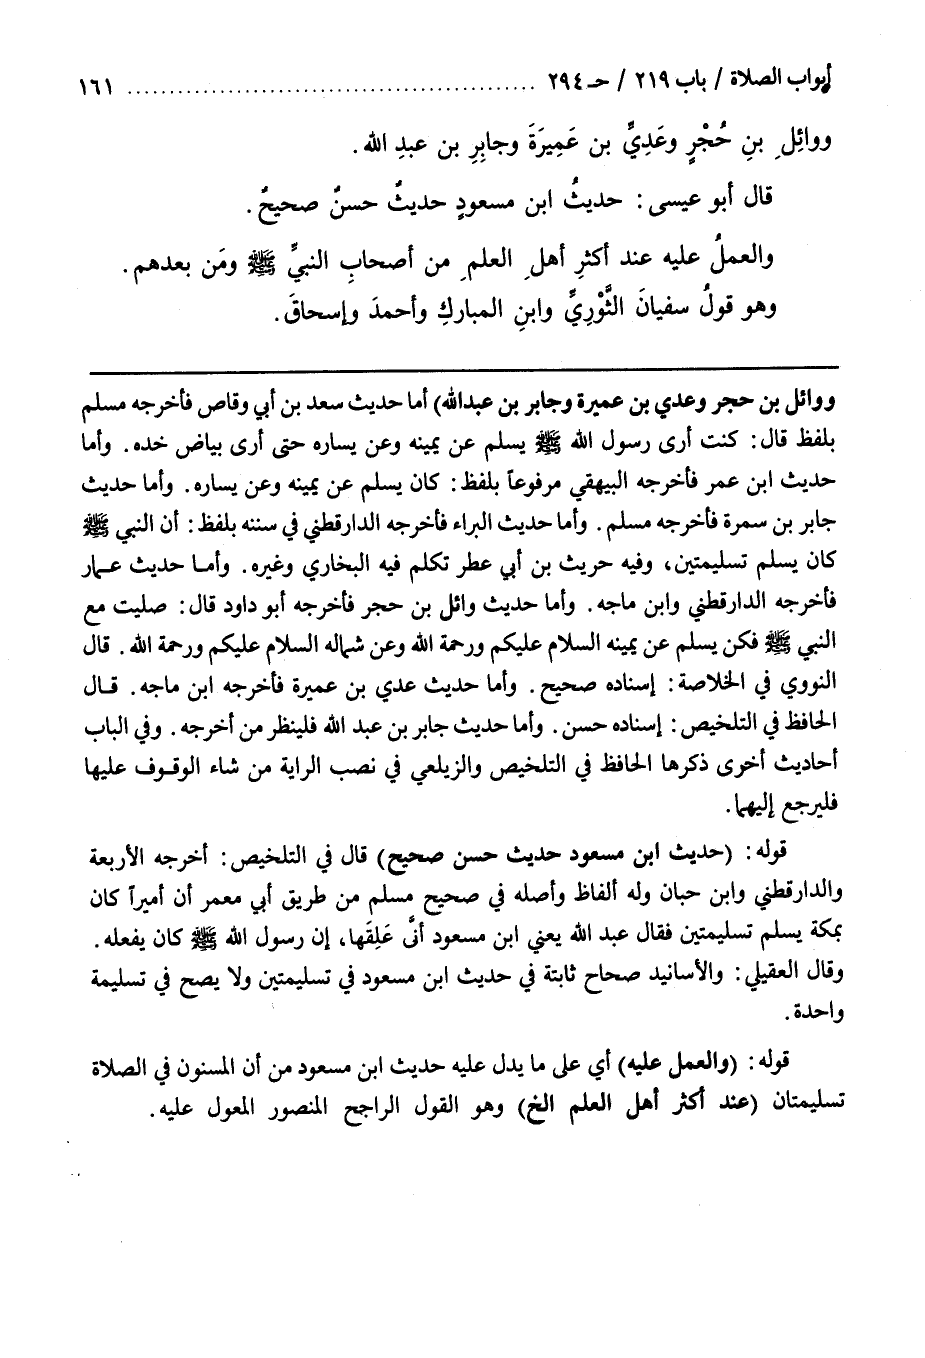 أبواب الصلاة / باب ٢١٩ / حـ ٢٩٤ ................................................ ١٦١
ووائِلِ بنِ حُجْرٍ وعَدِيِّ بن عَمِيرَةَ وجابِرِ بن عبدِ الله.
قال أبو عيسى: حديثُ ابن مسعودٍ حديثٌ حسنٌ صحيحٌ.
والعملُ عليه عند أكثرِ أهلِ العلمِ من أصحابِ النبيِّ ﷺ ومَن بعدهم.
وهو قولُ سفيانَ الثَّوْرِيِّ وابنِ المباركِ وأحمدَ وإسحاقَ.
ووائل بن حجر وعدي بن عميرة وجابر بن عبدالله) أما حديث سعد بن أبي وقاص فأخرجه مسلم
بلفظ قال: كنت أرى رسول الله ﷺ يسلم عن يمينه وعن يساره حتى أرى بياض خده. وأما
حديث ابن عمر فأخرجه البيهقي مرفوعاً بلفظ: كان يسلم عن يمينه وعن يساره. وأما حديث
جابر بن سمرة فأخرجه مسلم. وأما حديث البراء فأخرجه الدارقطني في سننه بلفظ: أن النبي ﷺ
كان يسلم تسليمتين، وفيه حريث بن أبي عطر تكلم فيه البخاري وغيره. وأما حديث عمار
فأخرجه الدارقطني وابن ماجه. وأما حديث وائل بن حجر فأخرجه أبو داود قال: صليت مع
النبي ﷺ فكن يسلم عن يمينه السلام عليكم ورحمة الله وعن شماله السلام عليكم ورحمة الله. قال
النووي في الخلاصة: إسناده صحيح. وأما حديث عدي بن عميرة فأخرجه ابن ماجه. قال
الحافظ في التلخيص: إسناده حسن. وأما حديث جابر بن عبد الله فلينظر من أخرجه. وفي الباب
أحاديث أخرى ذكرها الحافظ في التلخيص والزيلعي في نصب الراية من شاء الوقوف عليها
فليرجع إليهما.
قوله: (حديث ابن مسعود حديث حسن صحيح) قال في التلخيص: أخرجه الأربعة
والدارقطني وابن حبان وله ألفاظ وأصله في صحيح مسلم من طريق أبي معمر أن أميراً كان
بمكة يسلم تسليمتين فقال عبد الله يعني ابن مسعود أنَّى عَلِقَها، إن رسول الله ﷺ كان يفعله.
وقال العقيلي: والأسانيد صحاح ثابتة في حديث ابن مسعود في تسليمتين ولا يصح في تسليمة
واحدة.
قوله: (والعمل عليه) أي على ما يدل عليه حديث ابن مسعود من أن المسنون في الصلاة
تسليمتان (عند أكثر أهل العلم الخ) وهو القول الراجح المنصور المعول عليه.